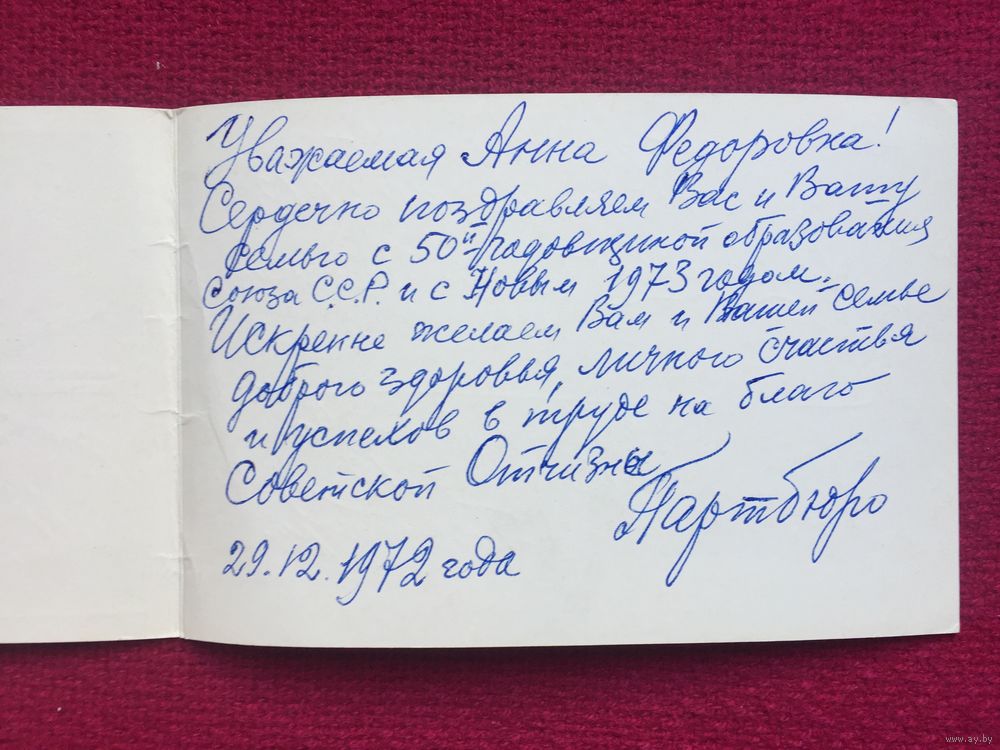 Уважаемая Анна Федоровна!
Сердечно поздравляем Вас и Вашу
семью с 50й годовщиной образования
Союза С.С.Р. и с Новым 1973 годом.
Искренне желаем Вам и Вашей семье
доброго здоровья, личного счастья
и успехов в труде на благо
Советской Отчизны
Партбюро
29.12.1972 года
www.ay.by